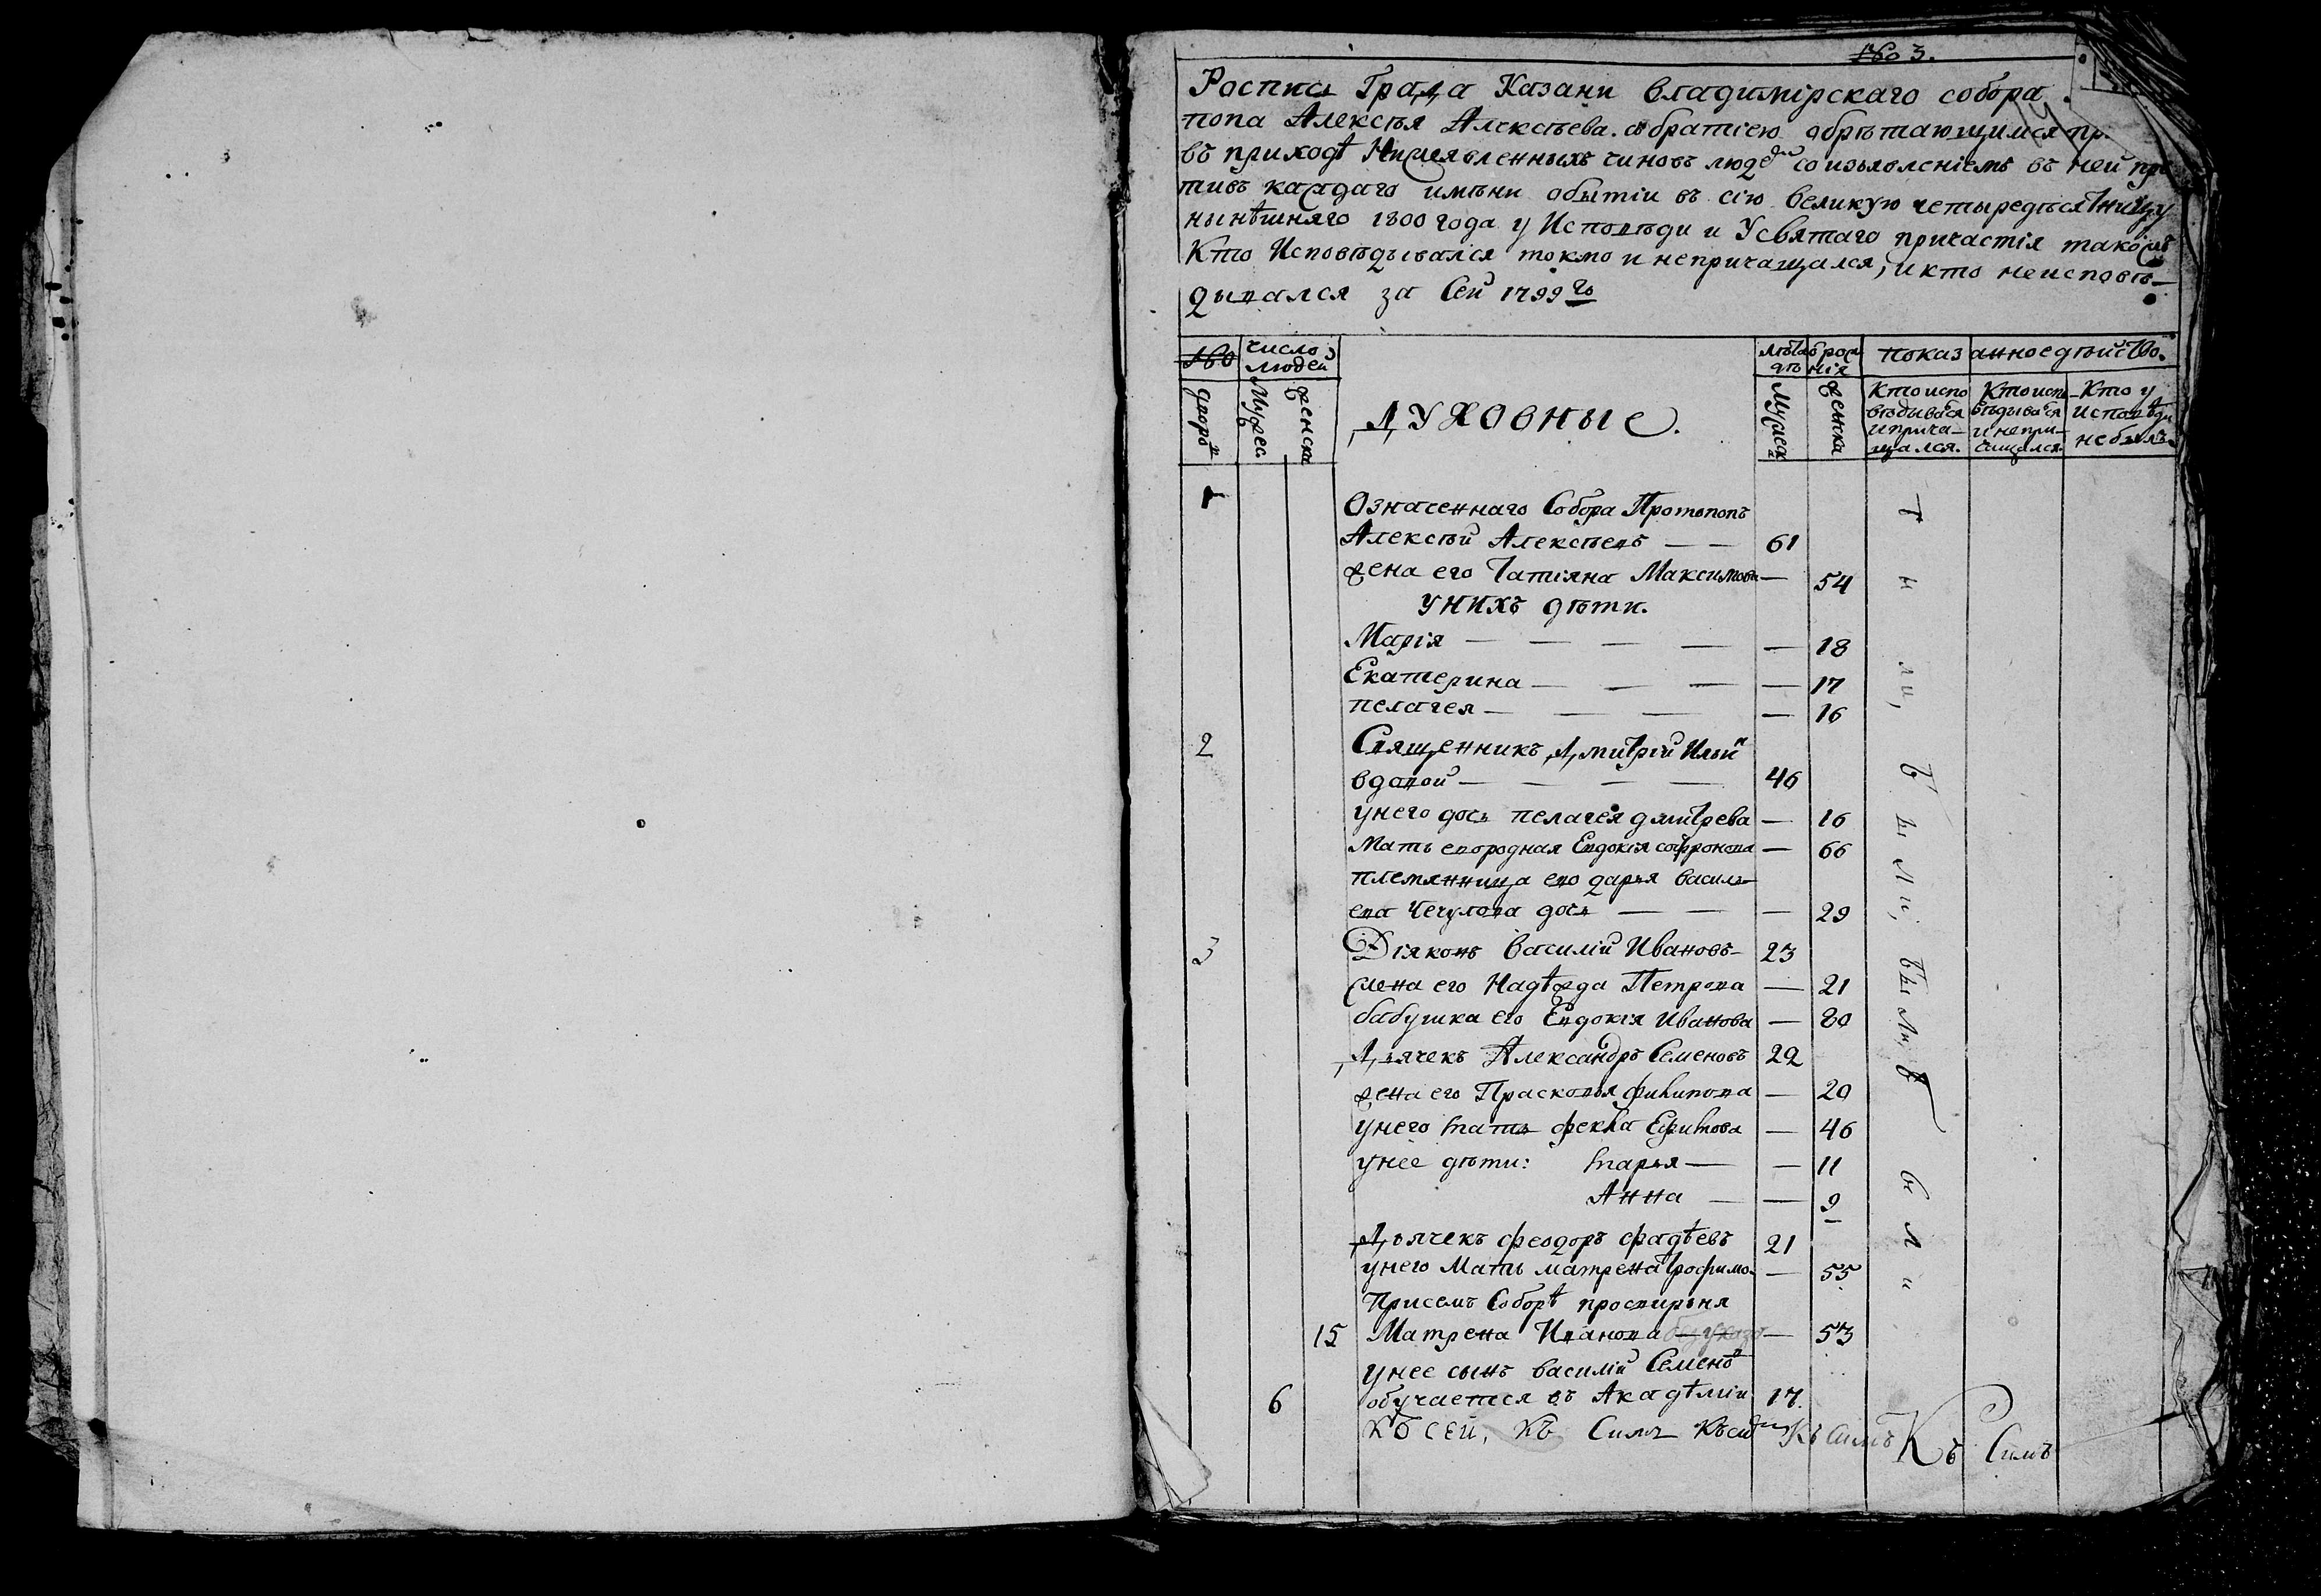 № 3.
Роспись Града Казани Владимірскаго собора
попа Алексѣя Алексѣева. събратіею обрѣтающимся пр
въ приходѣ Нижеявленныхъ чиновъ людей со изъявленіемъ въ ней про
тивъ каждаго имѣни обытіи въ сію великую четыредесятницу
нынѣшняго 1800 года у Исповѣди и У святаго причастія такожъ
Кто Исповѣдывался токмо и непричащался, икто неисповѣ-
дывался за Сей 1799 го
№
число людей
лѣта отъ рожденія
показанное дѣйство.
дворовъ
Мужес.
женска
Духовные.
Мужеск
женска
Кто испо вѣдывался и прича- щался.
Кто испо- вѣдывался и непри- чащался.
Кто у исповѣди не былъ.
1 Означеннаго Собора Протопопъ
Алексѣй Алексѣевъ — — 61
жена его Татіяна Максимова — 54
Унихъ дѣти.
Марія — — — — — 18
Екатерина — — — — 17
пелагея — — — — 16
2 Священникъ Дмитрій Ильин
вдовой — — — — 46
унего дочь пелагея дмитрева — 16
Мать егородная Евдокія софронова — 66
племянница его дарья василь-
ева Чечулова дочь — — — 29
3 Діяконъ Василій Ивановъ — 23
жена его Надѣжда Петрова — 21
бабушка его Евдокія Иванова — 80
Дьячекъ Александръ Семеновъ 22
жена его Прасковья филипова — 20
унего мать фекла Ефимова — 46
унее дѣти: марья — — 11
Анна — — 9
Дьячекъ феодоръ фадѣевъ 21
унего Мать матрена трофимо. — 55
Присемъ Соборѣ просвирьня
15 Матрена Иванова — 53
унее сынъ василій Семеновъ
6 обучается въ Академіи 17.
Къ сей, къ Симъ Къ сей Къ Симъ Къ Симъ
были, были